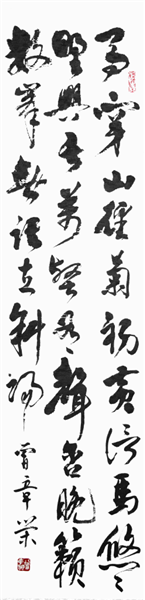 马穿山徑菊初黄信馬悠々
野興長萬壑有聲含晚籟
數峯無語立斜陽 曾章荣